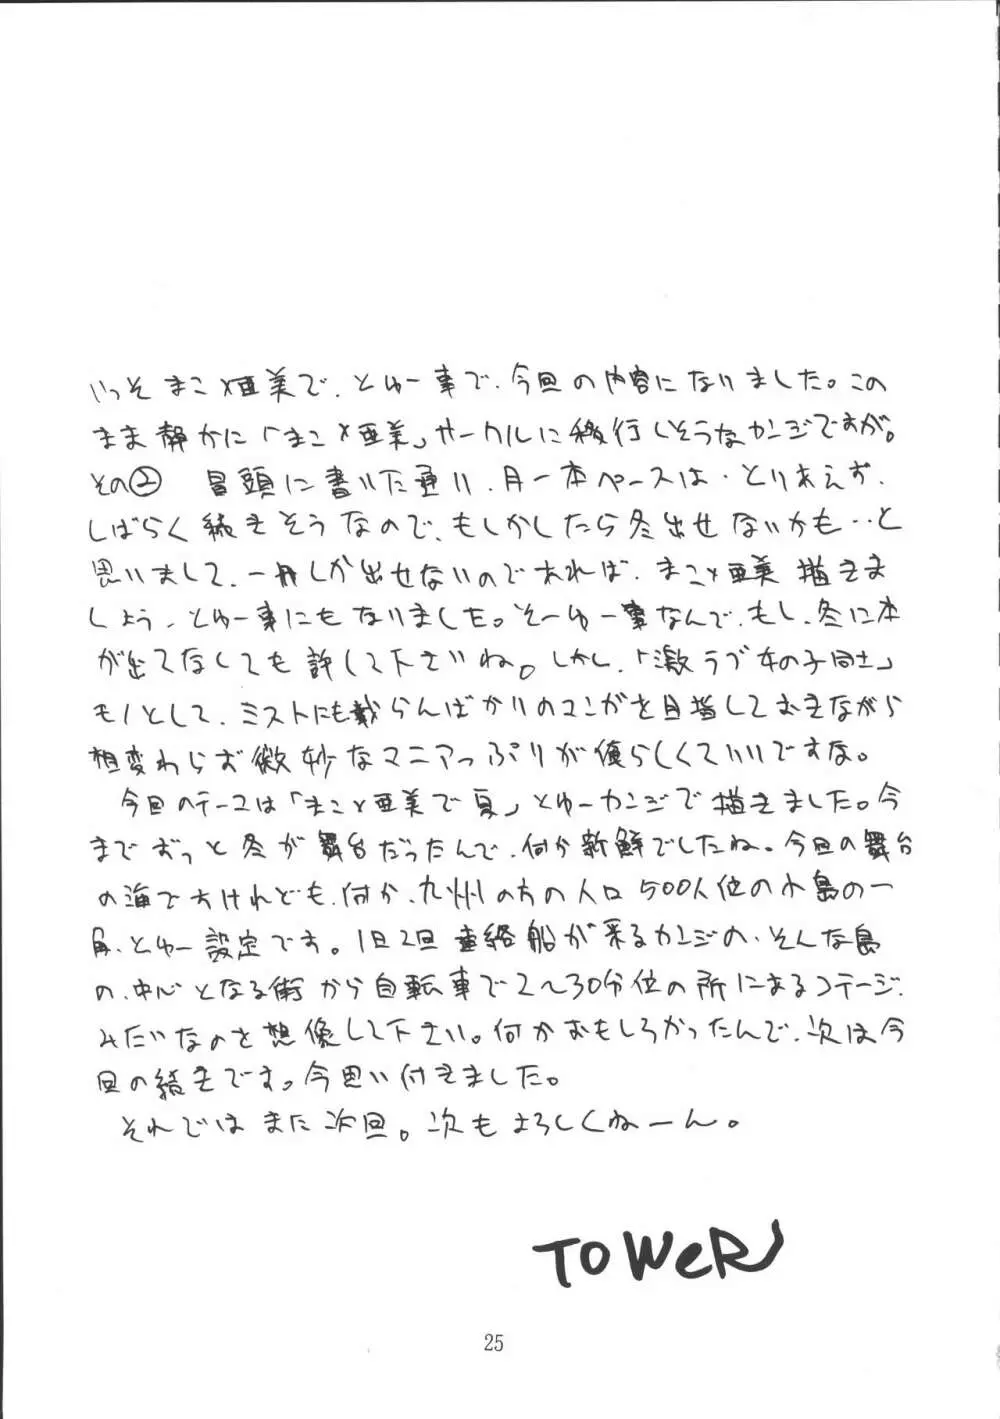 いっそまこ×亜美で、とゆー事で、今回の内容になりました。この
まま静かに「まこ×亜美」サークルに移行しそうなカンジですが。
その② 冒頭に書いた通り、月一本ペースは、とりあえず、
しばらく続きそうなので、もしかしたら冬出せないかも…と
思いまして、一冊しか出せないのであれば、まこ×亜美描きま
しょう、とゆー事にもなりました。そーゆー事なんで、もし、冬に本
が出てなくても許して下さいね。しかし、「激ラブ女の子同士」
モノとして、ミストにも載らんばかりのマンガを目指しておきながら
相変わらず微妙なマニアっぷりが僕らしくていいですな。
今回のテーマは「まこ×亜美で夏」とゆーカンジで描きました。今
までずっと冬が舞台だったんで、何か新鮮でしたね。今回の舞台
の海ですけれども、何か、九州の方の人口500人位の小島の一
角、とゆー設定です。1日2回連絡船が来るカンジの、そんな島
の、中心となる街から自転車で2〜30分位の所にあるコテージ、
みたいなのを想像して下さい。何かおもしろかったんで、次は今
回の続きです。今思い付きました。
それではまた次回。次もよろしくねーん。
TOWeR
25